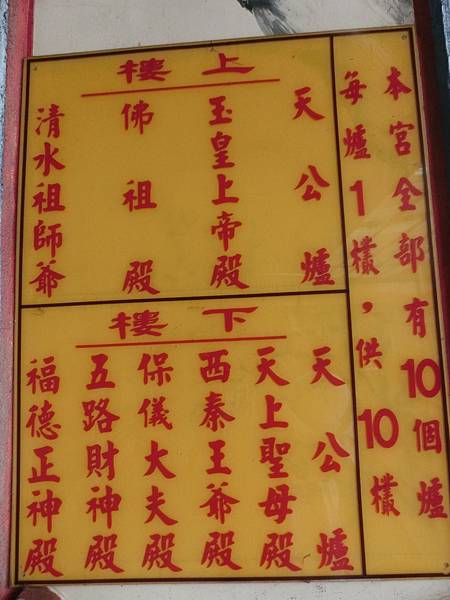 本宮全部有10個爐
每爐1欉，供10欉
上樓
天公爐
玉皇上帝殿
佛祖殿
清水祖師爺
下樓
天公爐
天上聖母殿
西秦王爺殿
保儀大夫殿
五路財神殿
福德正神殿